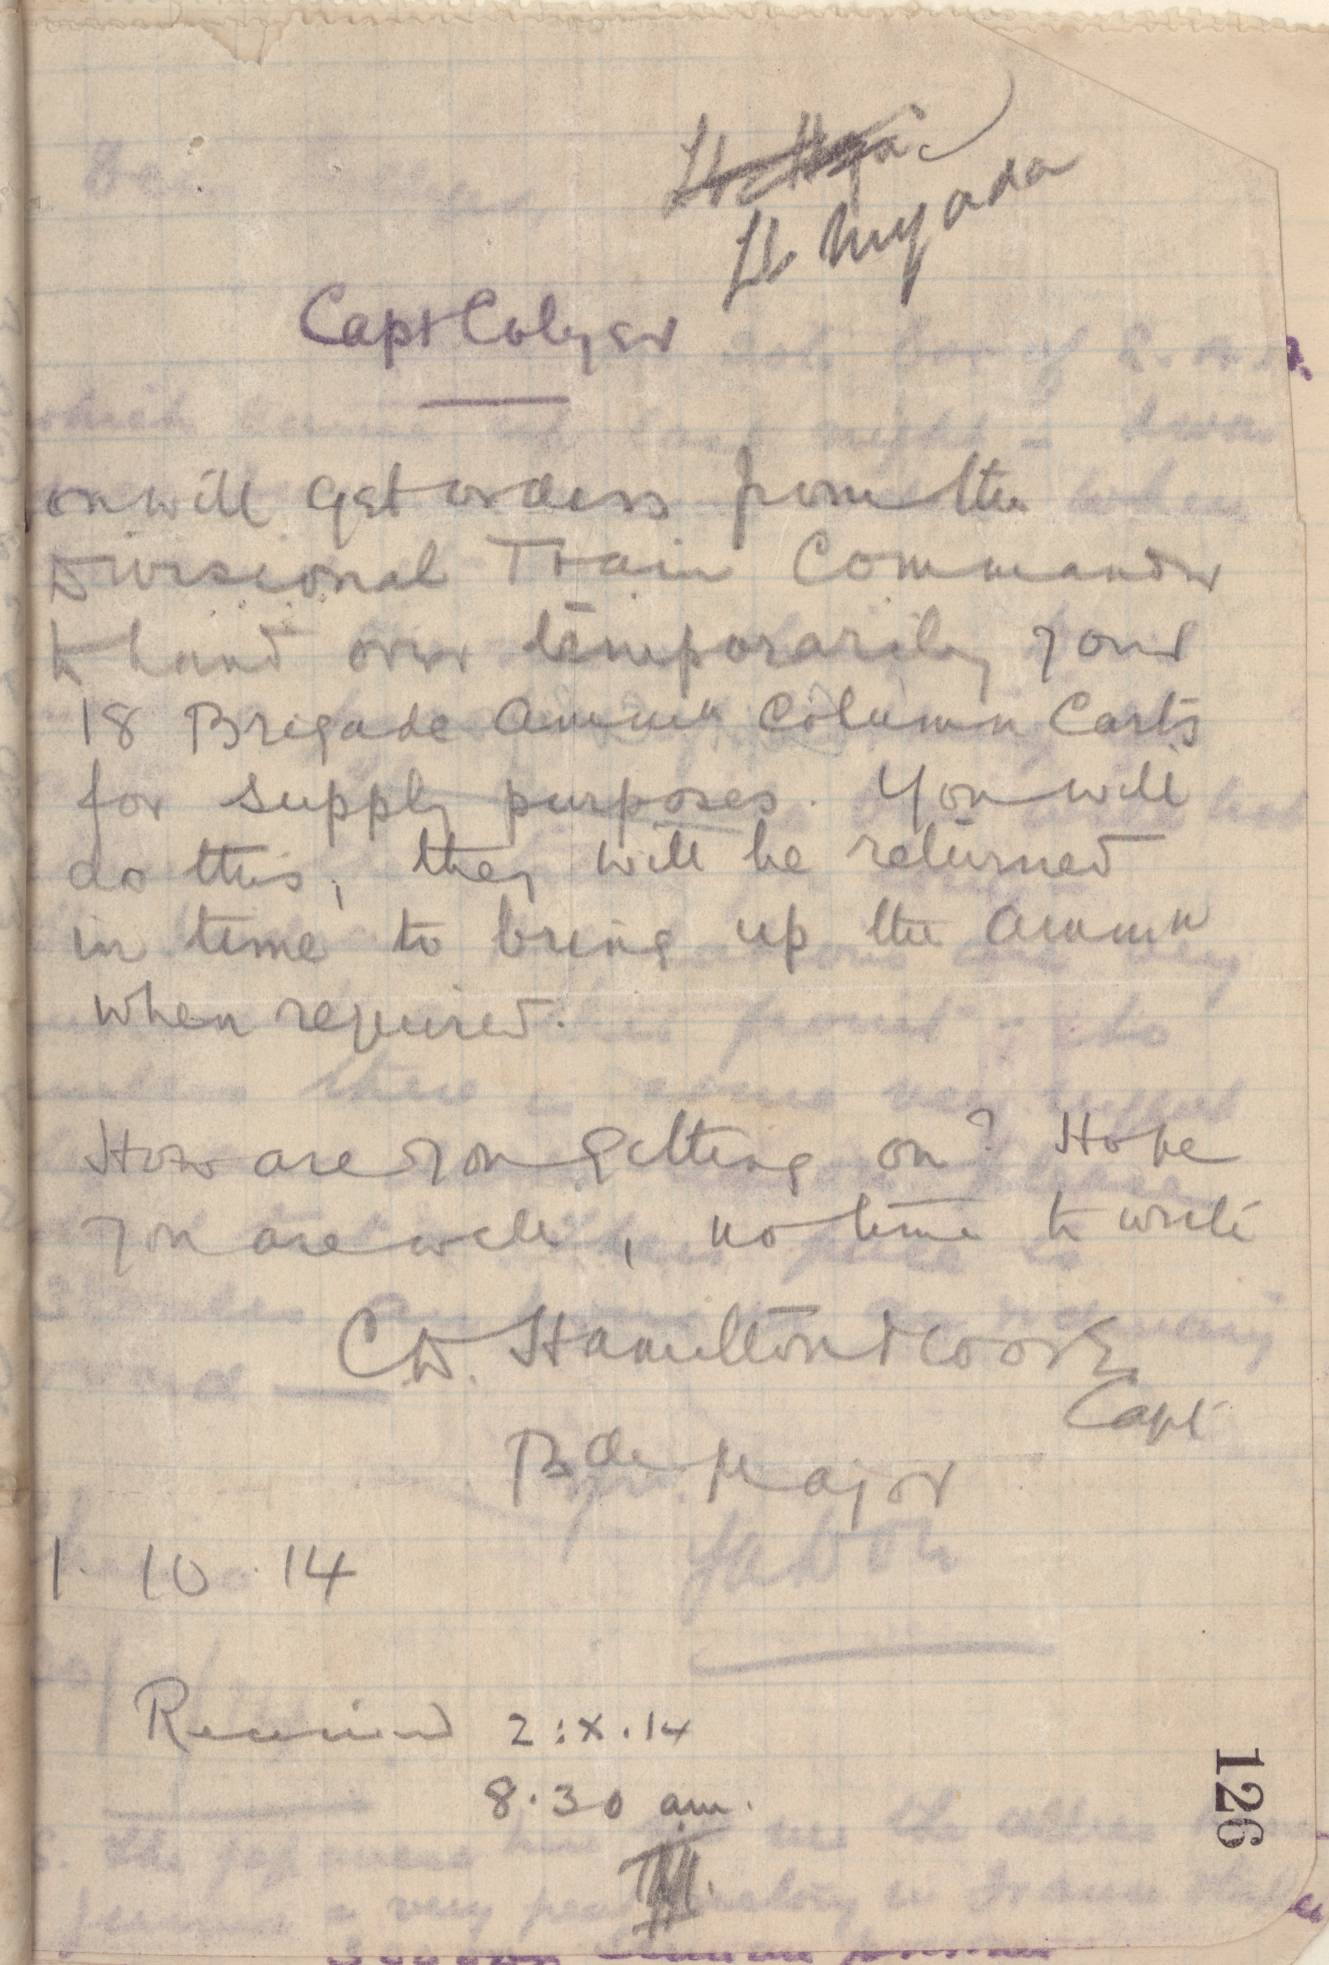 Lt Miyada
Capt Colyer
on will get orders from the
Divisional Train Commander
to hand over temporarily your
18 Brigade Ammn Column Carts
for supply purposes. You will
do this, they will be returned
in time to bring up the Ammn
when required.
How are you getting on? Hope
you are well, no time to write
C.D. Hamilton Moore
Capt
Bde Major
1. 10. 14
Received 2:X.14
8.30 am.
126